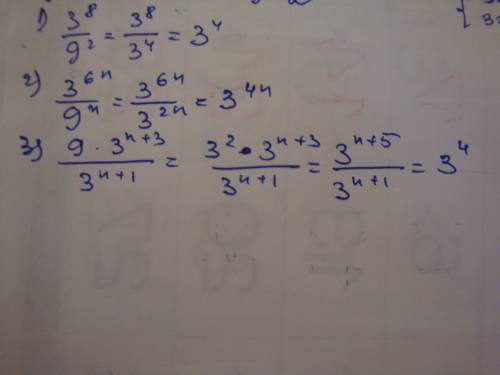 1) 3^8/9^2 = 3^8/3^4 = 3^4
2) 3^{6n}/9^n = 3^{6n}/3^{2n} = 3^{4n}
3) 9 · 3^{n+3}/3^{n+1} = 3^2 · 3^{n+3}/3^{n+1} = 3^{n+5}/3^{n+1} = 3^4